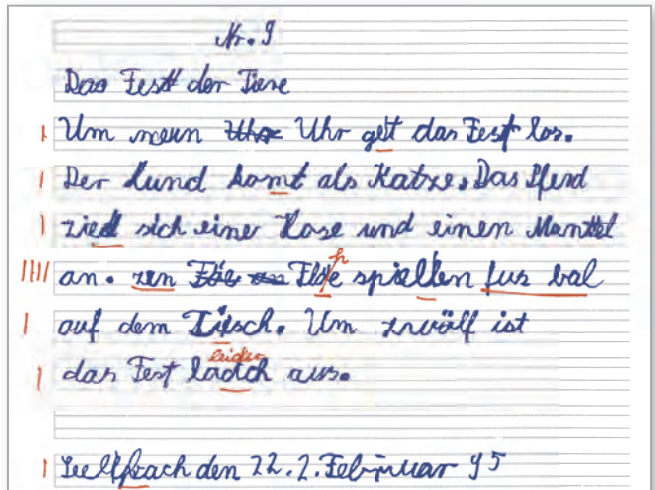 Nr. 9
Das Fest der Tiere
Um neun Uhr get das Fest los.
Der Hund komt als Katze. Das Pferd
zied sich eine Hose und einen Mantel
an. zen Elfe spiellen fus bal
auf dem Tisch. Um zwölf ist
leider
das Fest aus.
den 22. 2. Februar 95